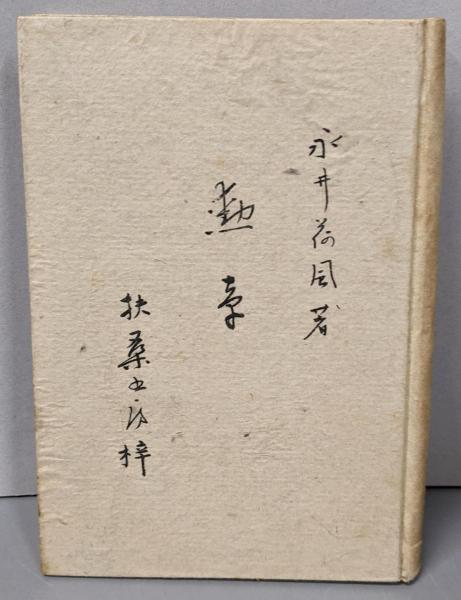 永井荷風著
勲章
扶桑书房梓